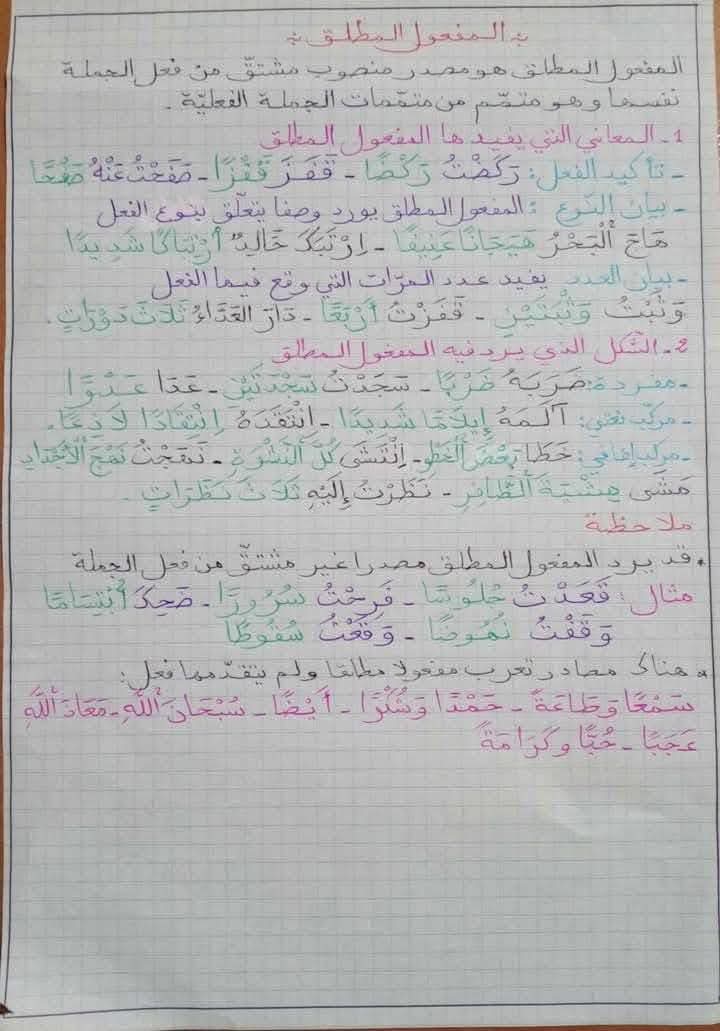 * المفعول المطلق *
المفعول المطلق هو مصدر منصوب مشتقّ من فعل الجملة
نفسها وهو متمّم من متمّمات الجملة الفعليّة .
1 - المعاني التي يفيدها المفعول المطلق
- تأكيد الفعل : رَكَضْتُ رَكْضًا - قَفَزَ قَفْزًا - صَفَحْتُ عَنْهُ صَفْحًا
- بيان النّوع : المفعول المطلق يورد وصفا يتعلّق بنوع الفعل
هَاجَ الْبَحْرُ هَيَجَانًا عَنِيفًا - اِرْتَبَكَ خَالِدٌ اُرْتِبَاكًا شَدِيدًا
- بيان العدد يفيد عدد المرّات التي وقع فيها الفعل
وَثَبْتُ وَثْبَتَيْنِ - قَفَزْتُ أَرْبَعًا - دَارَ العَدَّاءُ ثَلَاثَ دَوْرَاتٍ .
2 - الشّكل الذي يرد فيه المفعول المطلق
- مفردة : ضَرَبَهُ ضَرْبًا - سَجَدْتُ سَجْدَتَيْنِ - عَدَا عَدْوًا
- مركّب نعتي : آلَمَهُ إِيلَامًا شَدِيدًا - اِنْتَقَدَهُ اِنْتِقَادًا لَاذِعًا .
- مركب إضافي : خَطَا بَعْضَ الْخَطْوِ - اِنْتَشَى كُلَّ النَّشْوَةِ - نَهَجْتُ نَهْجَ الْأَجْدَادِ
مَشَى مِشْيَةَ الظَّافِرِ - نَظَرْتُ إِلَيْهِ ثَلَاثَ نَظَرَاتٍ .
ملاحظة
• قد يرد المفعول المطلق مصدرا غير مشتقّ من فعل الجملة
مثال : قَعَدْتُ جُلُوسًا - فَرِحْتُ سُرُورًا - ضَحِكَ اُبْتِسَامًا
وَقَفْتُ نُهُوضًا - وَقَعْتُ سُقُوطًا
• هناك مصادر تعرب مفعولا مطلقا ولم يتقدّمها فعل :
سَمْعًا وَطَاعَةً - حَمْدًا وَشُكْرًا - أَيْضًا - سُبْحَانَ اللَّهِ - مَعَاذَ اللَّهِ
عَجَبًا - حُبًّا وَكَرَامَةً